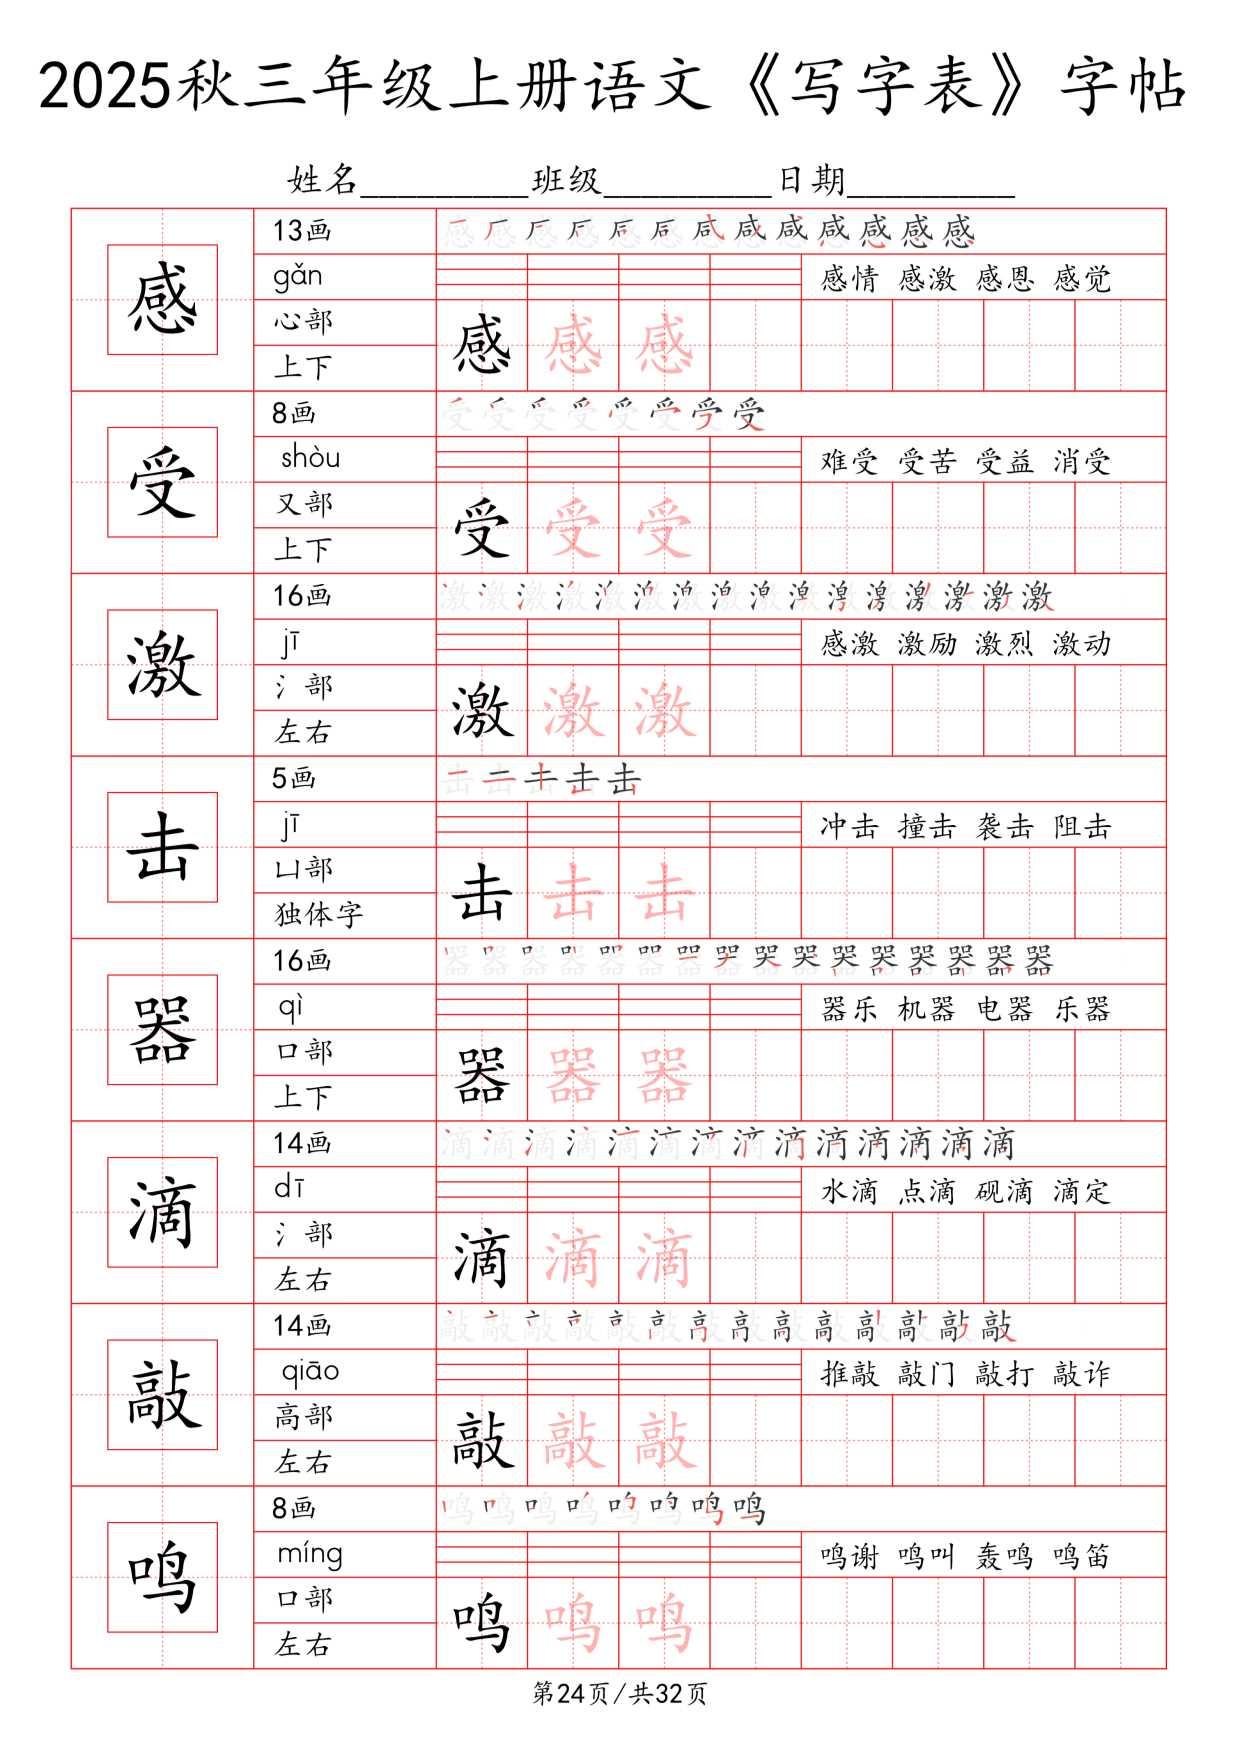 2025秋三年级上册语文《写字表》字帖
姓名_________班级_________日期_________
感
13画
gǎn
感情 感激 感恩 感觉
心部
上下
感 感 感
受
8画
shòu
难受 受苦 受益 消受
又部
上下
受 受 受
激
16画
jī
感激 激励 激烈 激动
氵部
左右
激 激 激
击
5画
jī
冲击 撞击 袭击 阻击
凵部
独体字
击 击 击
器
16画
qì
器乐 机器 电器 乐器
口部
上下
器 器 器
滴
14画
dī
水滴 点滴 砚滴 滴定
氵部
左右
滴 滴 滴
敲
14画
qiāo
推敲 敲门 敲打 敲诈
高部
左右
敲 敲 敲
鸣
8画
míng
鸣谢 鸣叫 轰鸣 鸣笛
口部
左右
鸣 鸣 鸣
第24页/共32页